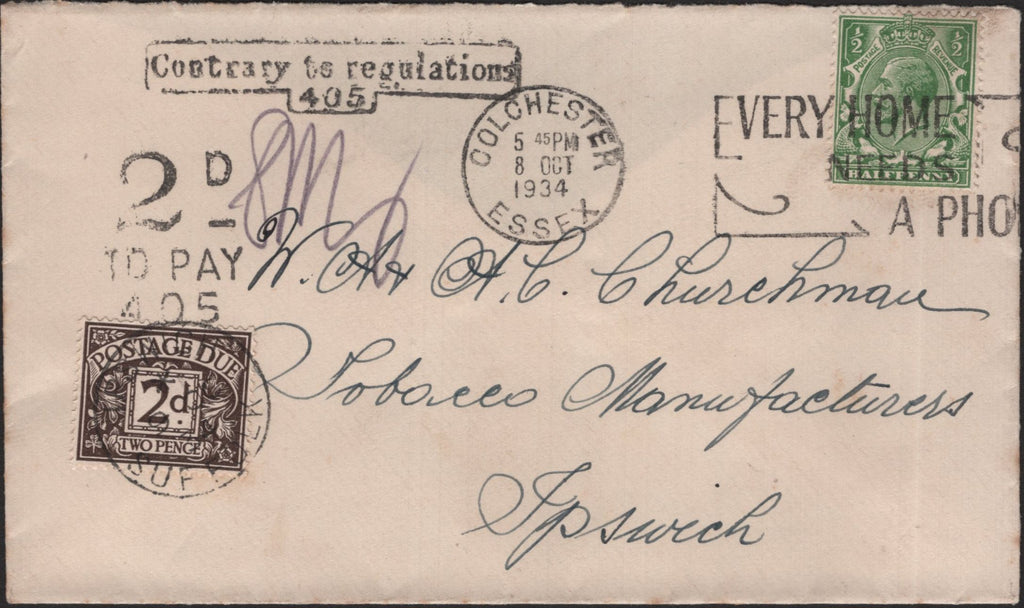 Contrary to regulations
405
2D
TO PAY
405
COLCHESTER
5 45PM
8 OCT
1934
ESSEX
½ ½
POSTAGE REVENUE
HALFPENNY
EVERY HOME
NEEDS
A PHO
W. A. & A. C. Churchman
Tobacco Manufacturers
Ipswich
POSTAGE DUE
2d.
TWO PENCE
SUF